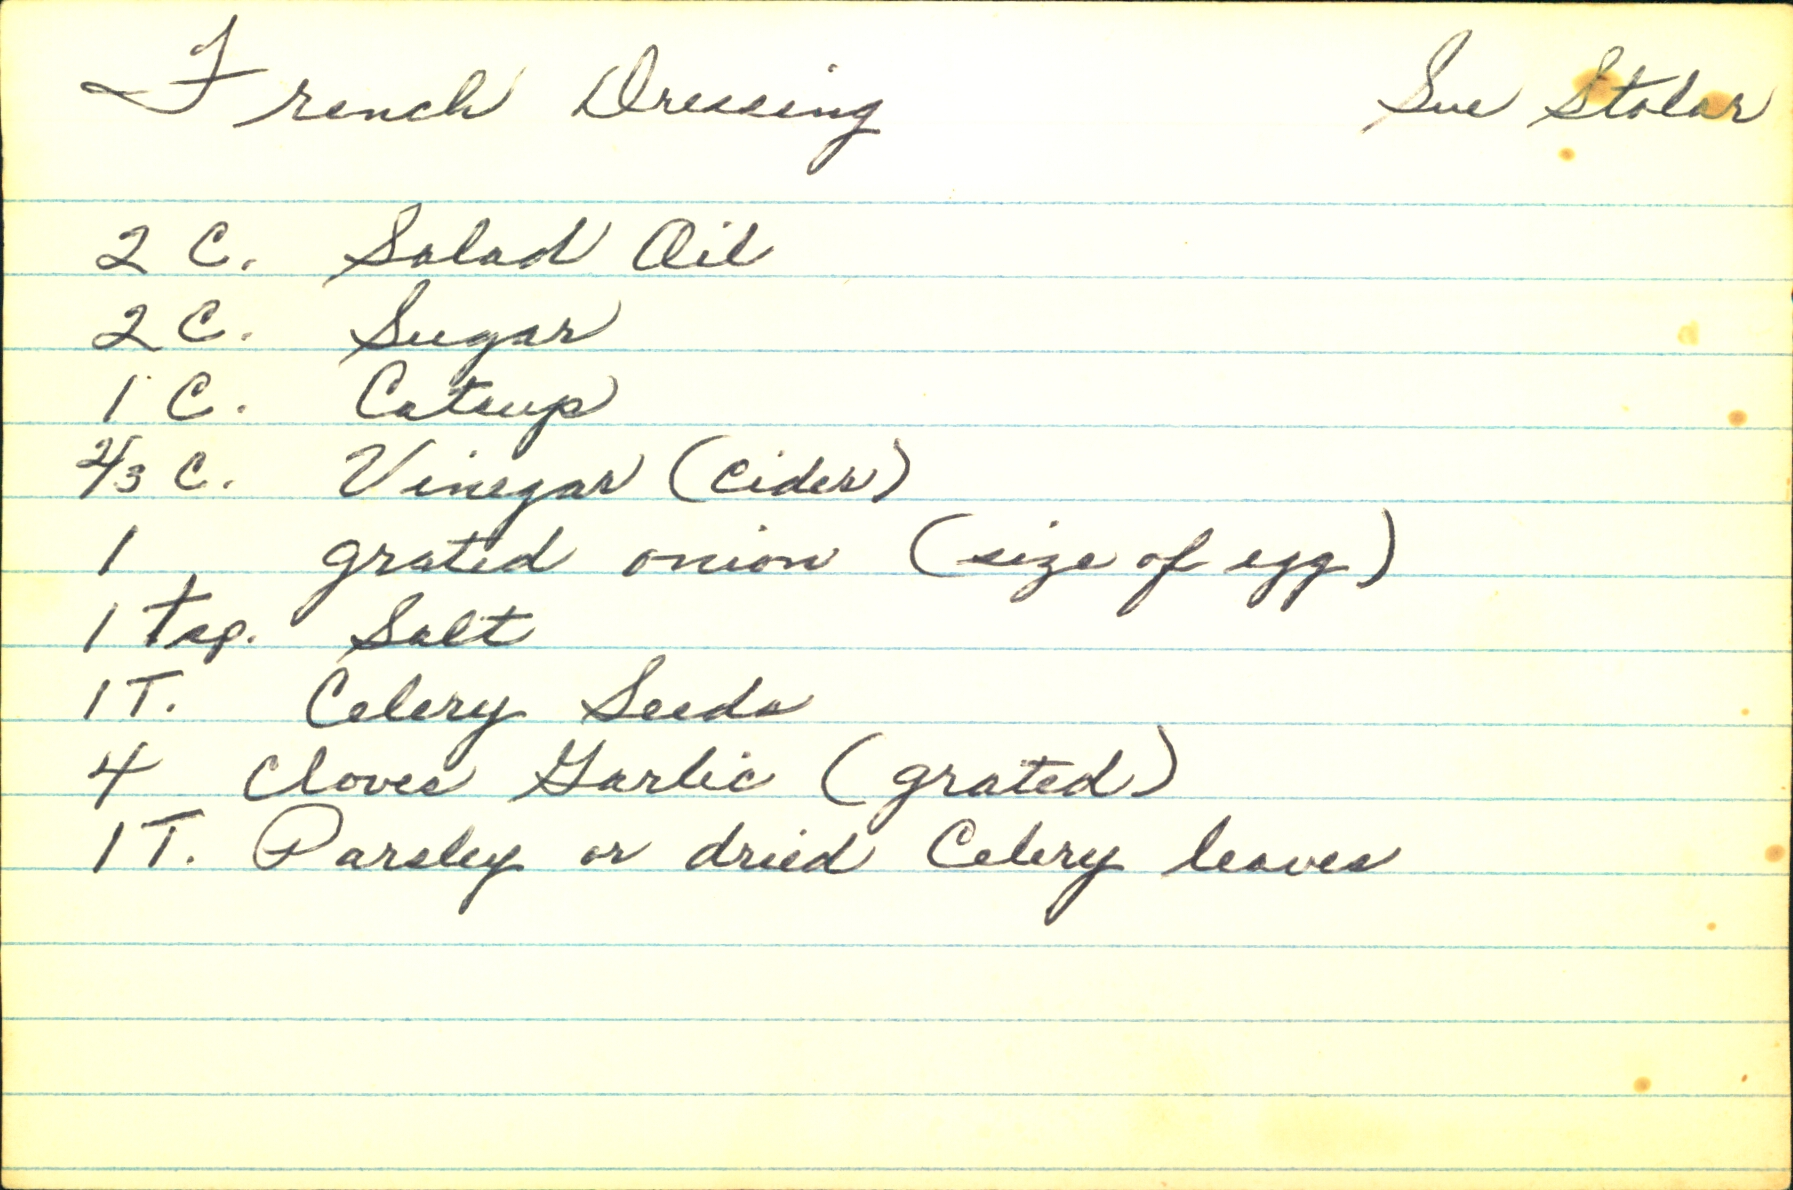 French Dressing Sue Stolar
2 C. Salad Oil
2 C. Sugar
1 C. Catsup
2/3 C. Vinegar (cider)
1 grated onion (size of egg)
1 tsp. Salt
1 T. Celery Seeds
4 cloves Garlic (grated)
1 T. Parsley or dried Celery leaves